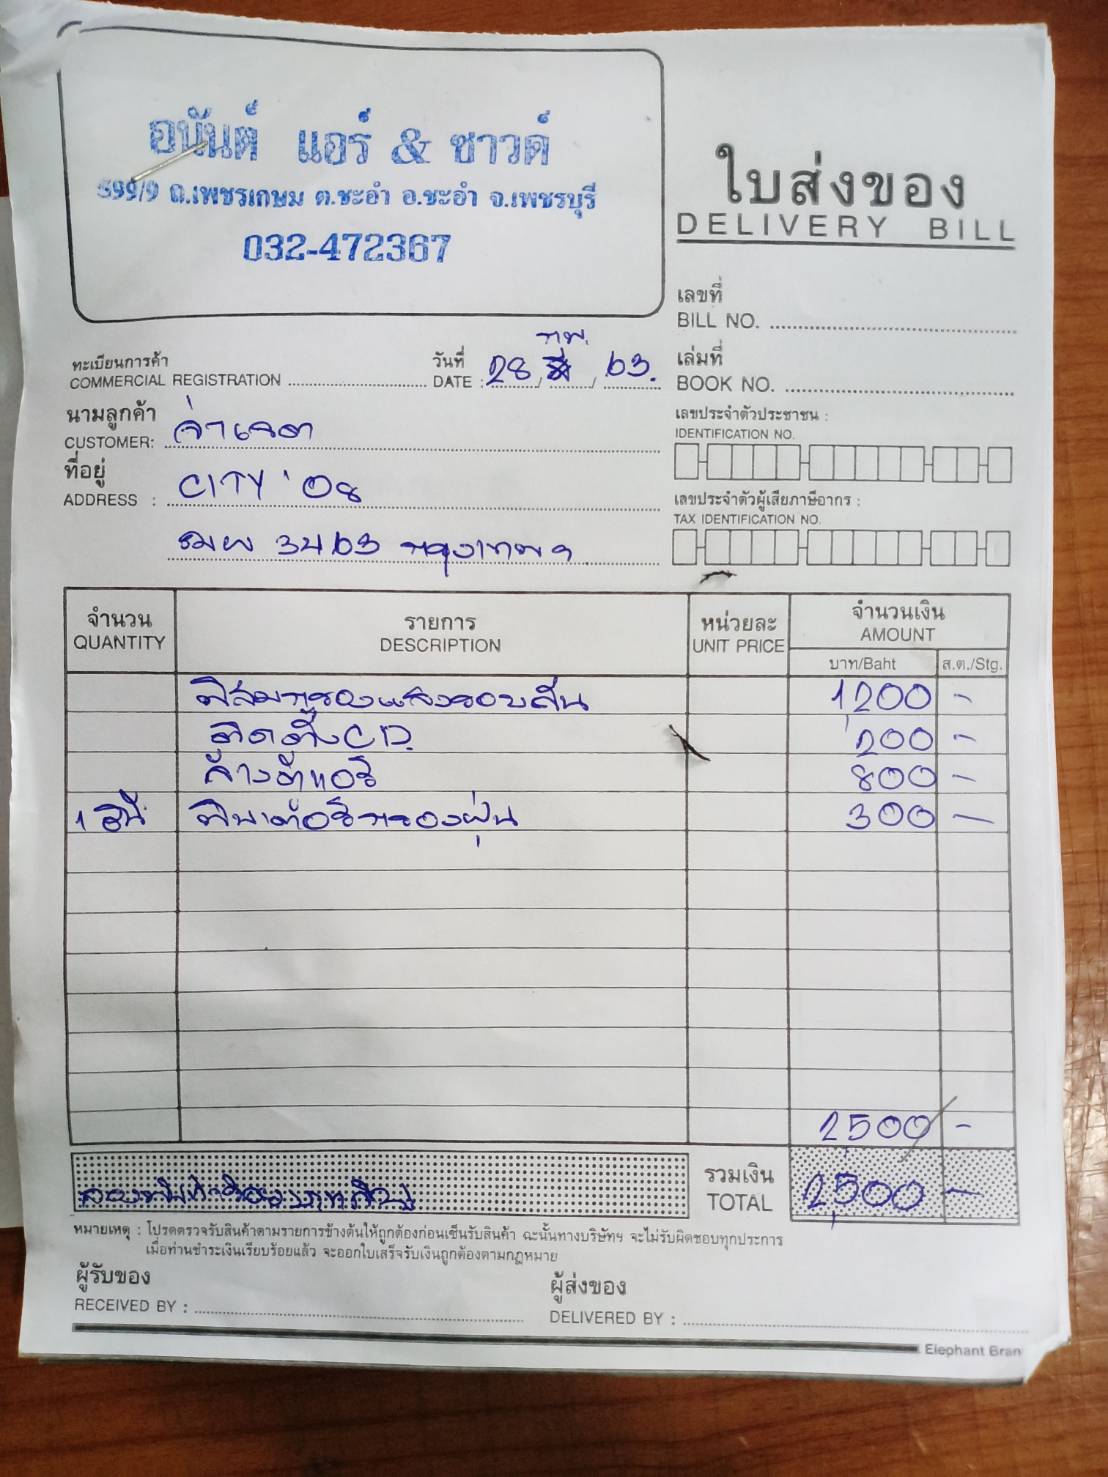 อนันต์ แอร์ & ซาวด์
599/9 ถ.เพชรเกษม ต.ชะอำ อ.ชะอำ จ.เพชรบุรี
032-472367
ใบส่งของ
DELIVERY BILL
เลขที่
BILL NO.
ทะเบียนการค้า
COMMERCIAL REGISTRATION
วันที่
DATE : 28 / กพ. / 63.
เล่มที่
BOOK NO.
นามลูกค้า
CUSTOMER: จ่าเจต
ที่อยู่
ADDRESS : CITY '08
3463 กรุงเทพฯ
เลขประจำตัวประชาชน :
IDENTIFICATION NO.
เลขประจำตัวผู้เสียภาษีอากร :
TAX IDENTIFICATION NO.
จำนวน รายการ หน่วยละ จำนวนเงิน
QUANTITY DESCRIPTION UNIT PRICE AMOUNT
บาท/Baht ส.ต./Stg.
ฟิล์มกรองแสงรอบคัน 1,200 -
ติดตั้ง CD. 200 -
ล้างตู้แอร์ 800 -
1 ฟิลเตอร์กรองฝุ่น 300 -
2,500 -
สองพันห้าร้อยบาทถ้วน
รวมเงิน
TOTAL 2,500 -
หมายเหตุ : โปรดตรวจรับสินค้าตามรายการข้างต้นให้ถูกต้องก่อนเซ็นรับสินค้า ฉะนั้นทางบริษัทฯ จะไม่รับผิดชอบทุกประการ
เมื่อท่านชำระเงินเรียบร้อยแล้ว จะออกใบเสร็จรับเงินถูกต้องตามกฎหมาย
ผู้รับของ
RECEIVED BY :
ผู้ส่งของ
DELIVERED BY :
Elephant Bran